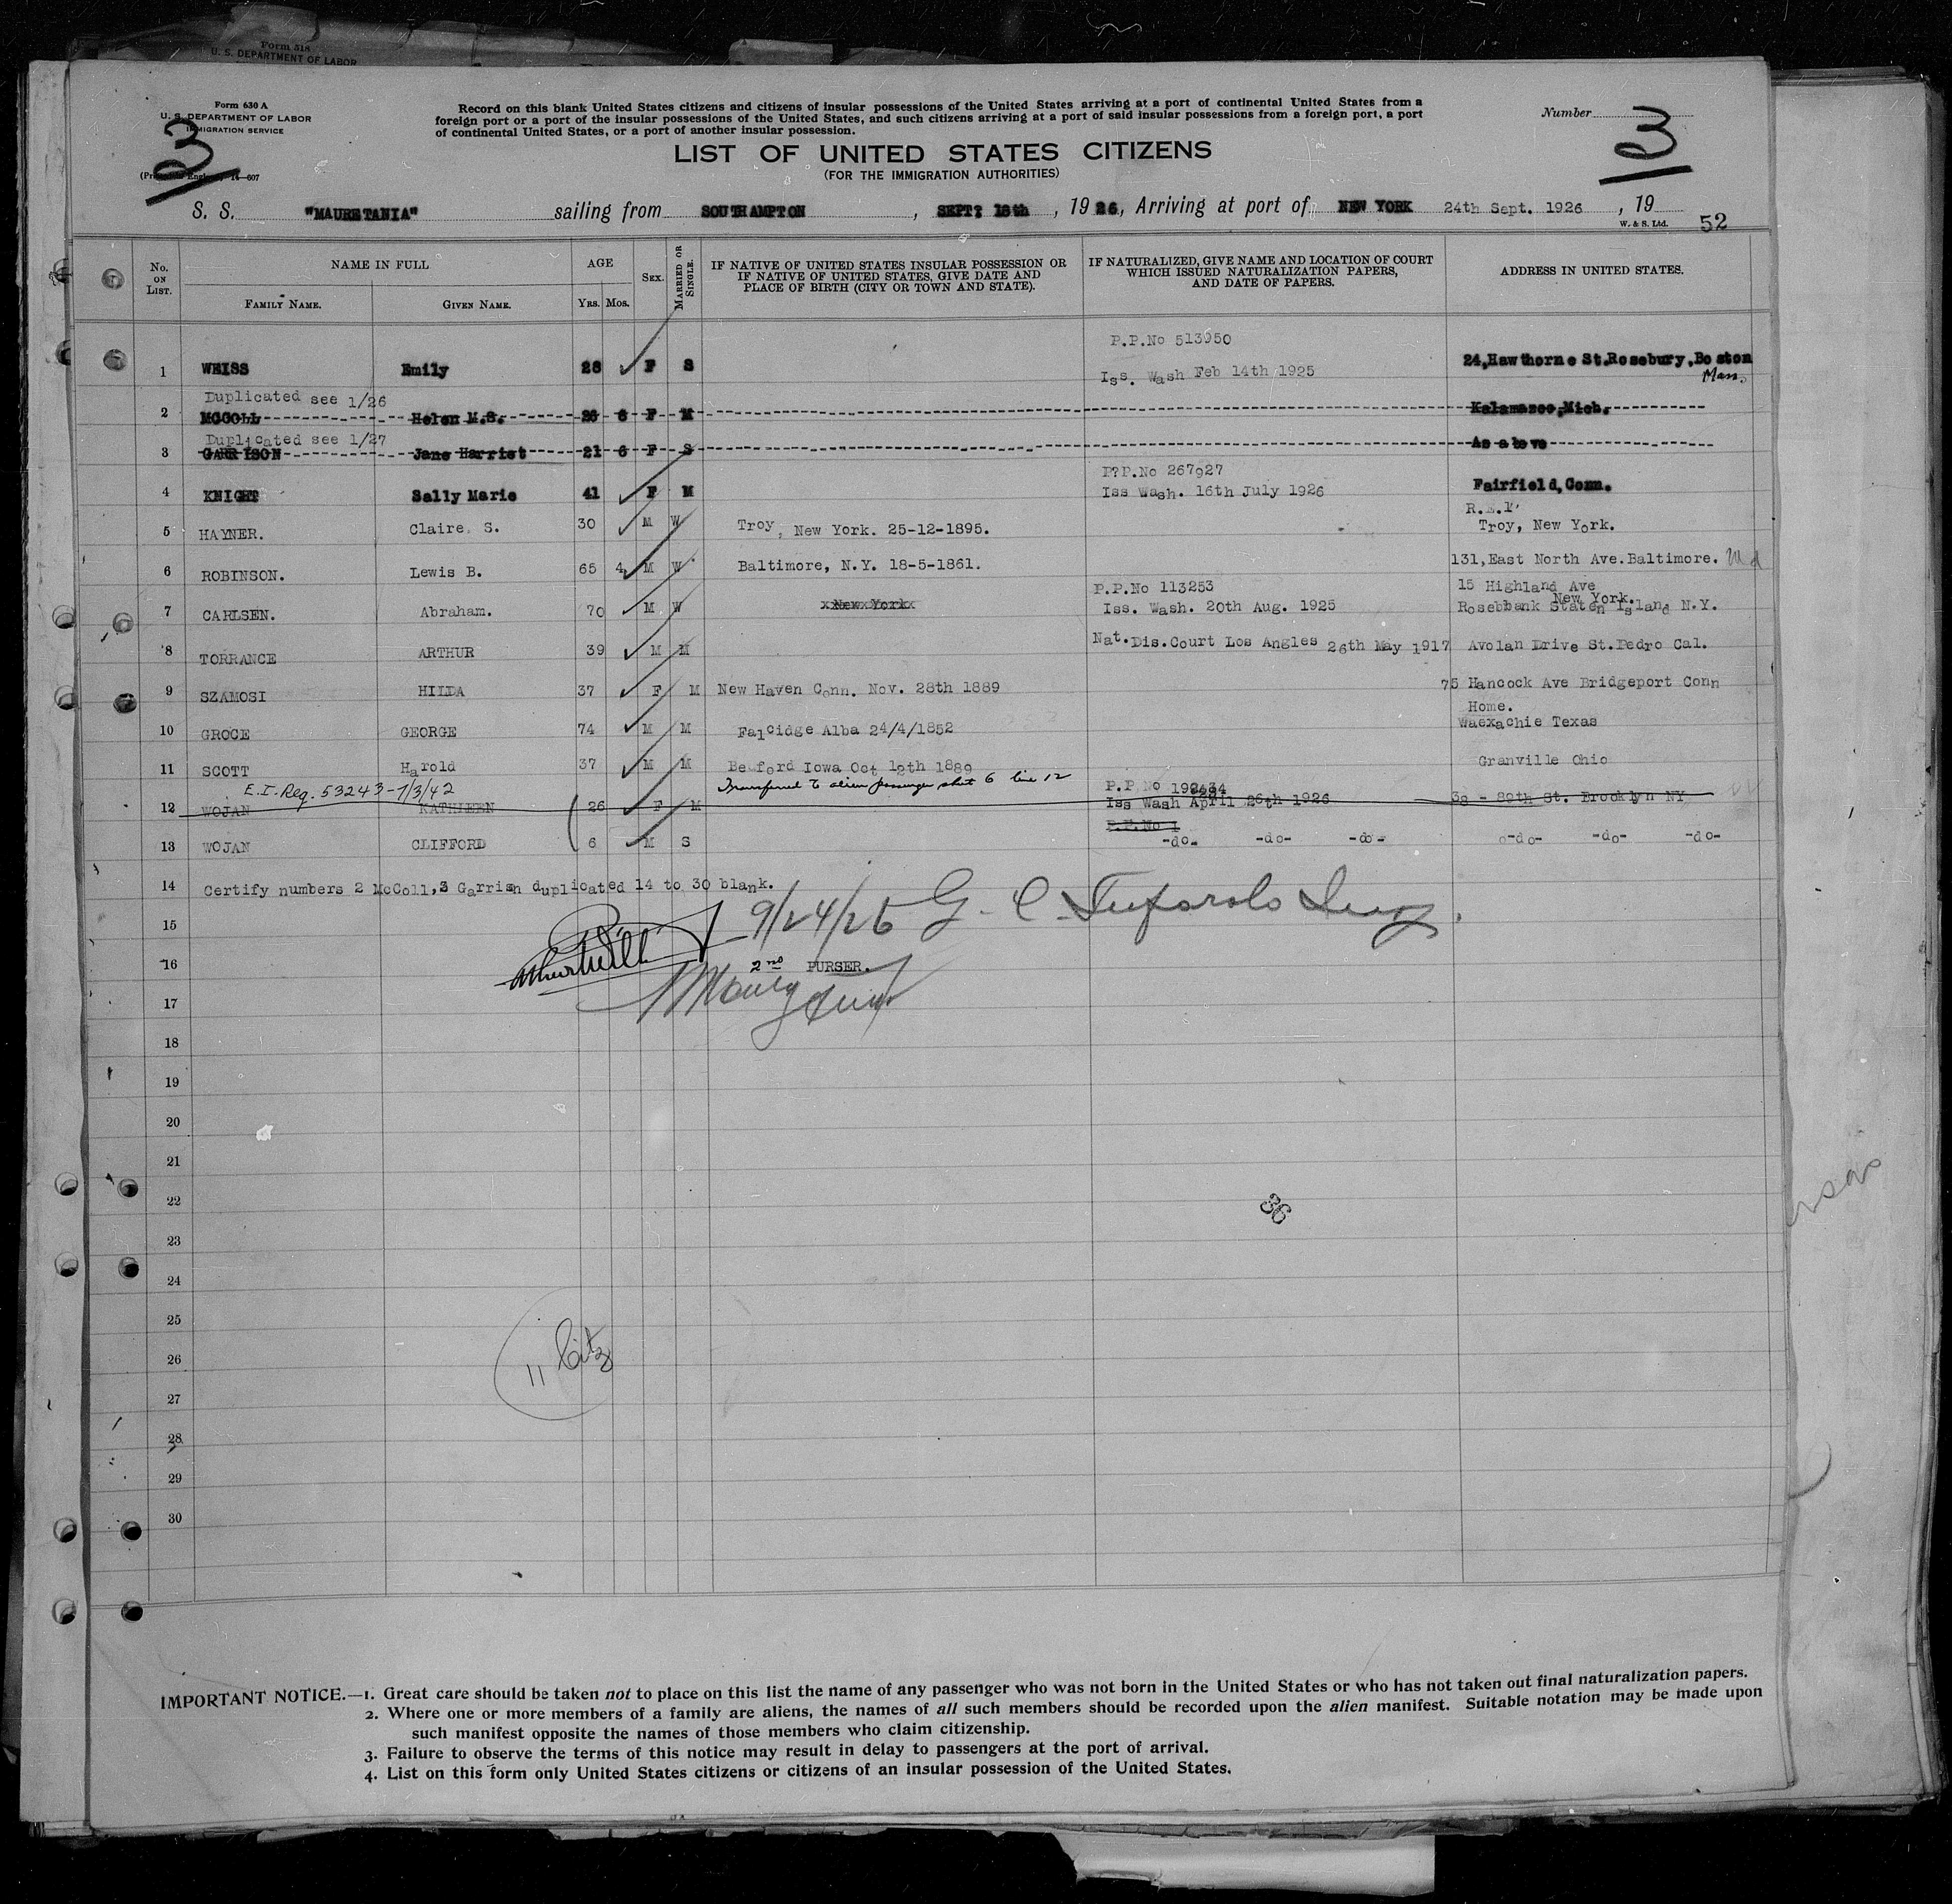 Form 518
U. S. DEPARTMENT OF LABOR
Form 630 A
U. S. DEPARTMENT OF LABOR
IMMIGRATION SERVICE
3
14—607
Record on this blank United States citizens and citizens of insular possessions of the United States arriving at a port of continental United States from a
foreign port or a port of the insular possessions of the United States, and such citizens arriving at a port of said insular possessions from a foreign port, a port
of continental United States, or a port of another insular possession.
Number
3
LIST OF UNITED STATES CITIZENS
(FOR THE IMMIGRATION AUTHORITIES)
S. S. "MAURETANIA" sailing from SOUTHAMPTON, SEPT? 18th, 1926, Arriving at port of NEW YORK 24th Sept. 1926, 19
W. & S. Ltd.
52
No. ON LIST. NAME IN FULL FAMILY NAME. GIVEN NAME. AGE YRS. MOS. SEX. MARRIED OR SINGLE. IF NATIVE OF UNITED STATES INSULAR POSSESSION OR IF NATIVE OF UNITED STATES, GIVE DATE AND PLACE OF BIRTH (CITY OR TOWN AND STATE). IF NATURALIZED, GIVE NAME AND LOCATION OF COURT WHICH ISSUED NATURALIZATION PAPERS, AND DATE OF PAPERS. ADDRESS IN UNITED STATES.
P.P.No 513950
1 WEISS Emily 28 F S Iss. Wash Feb 14th 1925 24,Hawthorne St.Rosebury,Boston
Mass.
Duplicated see 1/26
2 MCCOLL Helen M.S. 26 6 F M Kalamazoo,Mich.
Duplicated see 1/27
3 GARRISON Jane Harriet 21 6 F S As above
P?P.No 267927
4 KNIGHT Sally Marie 41 F M Iss Wash. 16th July 1926 Fairfield,Conn.
R.E.F
5 HAYNER. Claire S. 30 M W Troy, New York. 25-12-1895. Troy, New York.
6 ROBINSON. Lewis B. 65 4 M W Baltimore, N.Y. 18-5-1861. 131,East North Ave.Baltimore. Md
P.P.No 113253 15 Highland Ave
New York.
7 CARLSEN. Abraham. 70 M W xNewxYorkx Iss. Wash. 20th Aug. 1925 Rosebbank Staten Island N.Y.
8 TORRANCE ARTHUR 39 M M Nat.Dis.Court Los Angles 26th May 1917 Avolan Drive St.Pedro Cal.
9 SZAMOSI HILDA 37 F M New Haven Conn. Nov. 28th 1889 75 Hancock Ave Bridgeport Conn
Home.
10 GROCE GEORGE 74 M M Falcidge Alba 24/4/1852 Waexachie Texas
11 SCOTT Harold 37 M M Bedford Iowa Oct 12th 1889 Granville Ohio
E.I.Reg. 53243-7/3/42 Transferred to alien passenger sheet 6 line 12
P.P No
12 WOJAN KATHLEEN 26 F M Iss Wash April 26th 1926 38 - 89th St. Brooklyn NY
P.P.No 1
13 WOJAN CLIFFORD 6 M S -do- -do- -do- -do- -do- -do-
14 Certify numbers 2 McColl,3 Garrisn duplicated 14 to 30 blank.
15
9/24/26 G. C.
16
2nd PURSER.
17
18
19
20
21
22
36
23
24
25
26
11 Citz
27
28
29
30
IMPORTANT NOTICE.—1. Great care should be taken not to place on this list the name of any passenger who was not born in the United States or who has not taken out final naturalization papers.
2. Where one or more members of a family are aliens, the names of all such members should be recorded upon the alien manifest. Suitable notation may be made upon
such manifest opposite the names of those members who claim citizenship.
3. Failure to observe the terms of this notice may result in delay to passengers at the port of arrival.
4. List on this form only United States citizens or citizens of an insular possession of the United States.